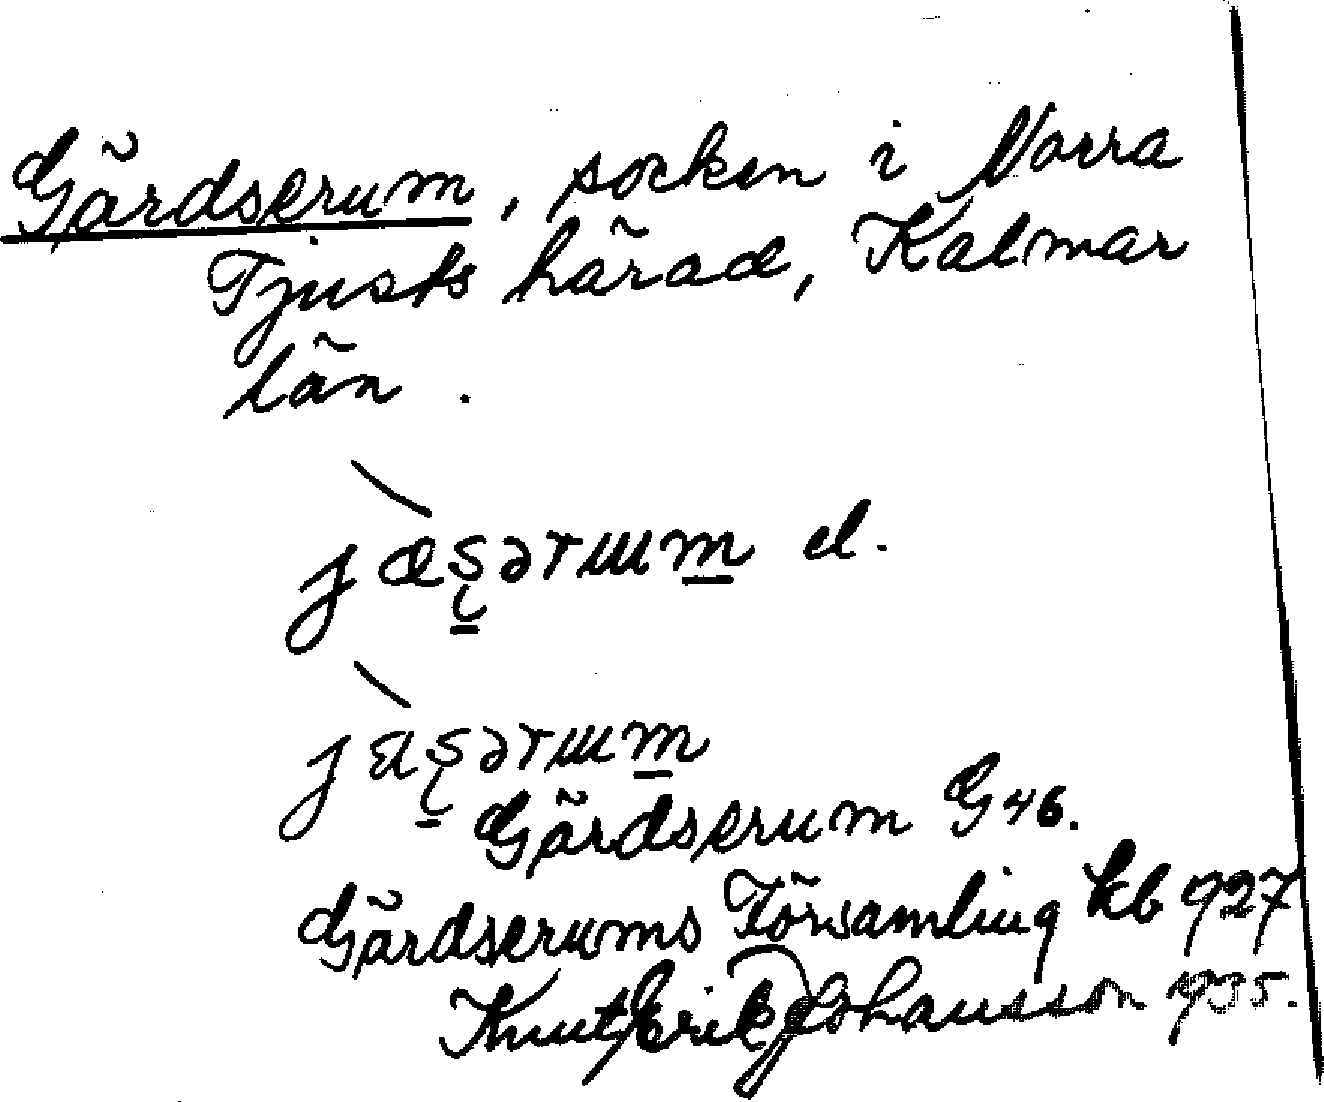 Gärdserum, socken i Norra
Tjusts härad, Kalmar
län.
el.
Gärdserum G 46.
Gärdserums Församling kb 1927
Knut Erik Johansson 1935.